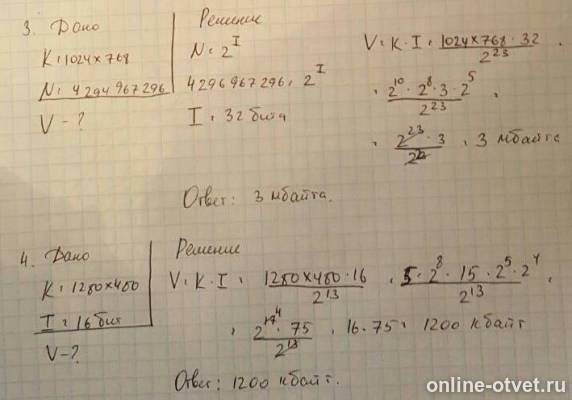 3. Дано
K = 1024 x 768
N = 4294967296
V - ?
Решение
N = 2^I
4296967296 = 2^I
I = 32 бита
V = K · I = 1024 x 768 · 32 / 2^23 =
= 2^10 · 2^8 · 3 · 2^5 / 2^23 =
= 2^23 · 3 / 2^23 = 3 мбайта
Ответ: 3 мбайта.
4. Дано
K = 1280 x 480
I = 16 бит
V - ?
Решение
V = K · I = 1280 x 480 · 16 / 2^13 = 5 · 2^8 · 15 · 2^5 · 2^4 / 2^13 =
= 2^17 · 75 / 2^13 = 16 · 75 = 1200 кбайт
Ответ: 1200 кбайт.
online-otvet.ru